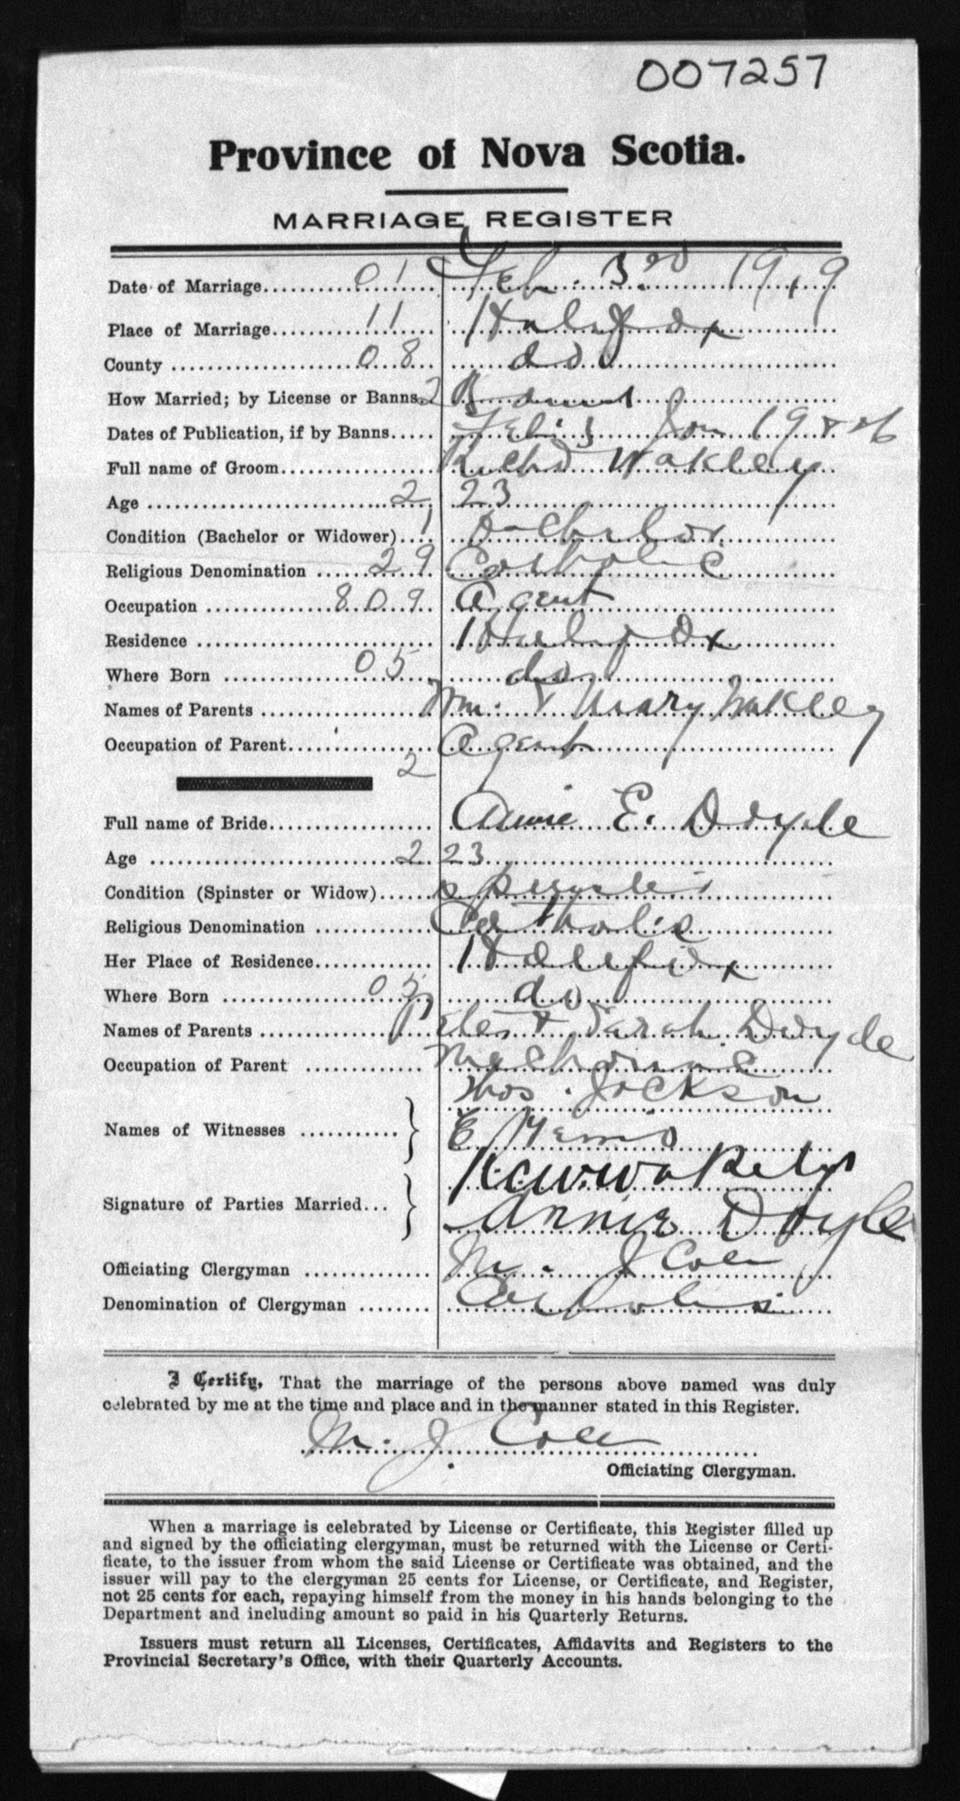 007257
Province of Nova Scotia.
MARRIAGE REGISTER
Date of Marriage 01 Feb. 3rd 1919
Place of Marriage 11 Halifax
County 08 do
How Married; by License or Banns 2 Banns
Dates of Publication, if by Banns Feb Jan 19 & 26
Full name of Groom Richd Wakley
Age 2 23
Condition (Bachelor or Widower) 1 Bachelor
Religious Denomination 29 Catholic
Occupation 809 Agent
Residence Halifax
Where Born 05 do
Names of Parents Wm. & Mary Wakley
Occupation of Parent Agent
2
Full name of Bride Annie E. Doyle
Age 2 23
Condition (Spinster or Widow) Spinster
Religious Denomination Catholic
Her Place of Residence Halifax
Where Born 05 do
Names of Parents & Sarah Doyle
Occupation of Parent Mechanic
Thos. Jackson
Names of Witnesses E
Wakely
Signature of Parties Married Annie Doyle
Officiating Clergyman M. J. Cole
Denomination of Clergyman Catholic
I Certify, That the marriage of the persons above named was duly
celebrated by me at the time and place and in the manner stated in this Register.
M. J. Cole
Officiating Clergyman.
When a marriage is celebrated by License or Certificate, this Register filled up
and signed by the officiating clergyman, must be returned with the License or Certi-
ficate, to the issuer from whom the said License or Certificate was obtained, and the
issuer will pay to the clergyman 25 cents for License, or Certificate, and Register,
not 25 cents for each, repaying himself from the money in his hands belonging to the
Department and including amount so paid in his Quarterly Returns.
Issuers must return all Licenses, Certificates, Affidavits and Registers to the
Provincial Secretary's Office, with their Quarterly Accounts.